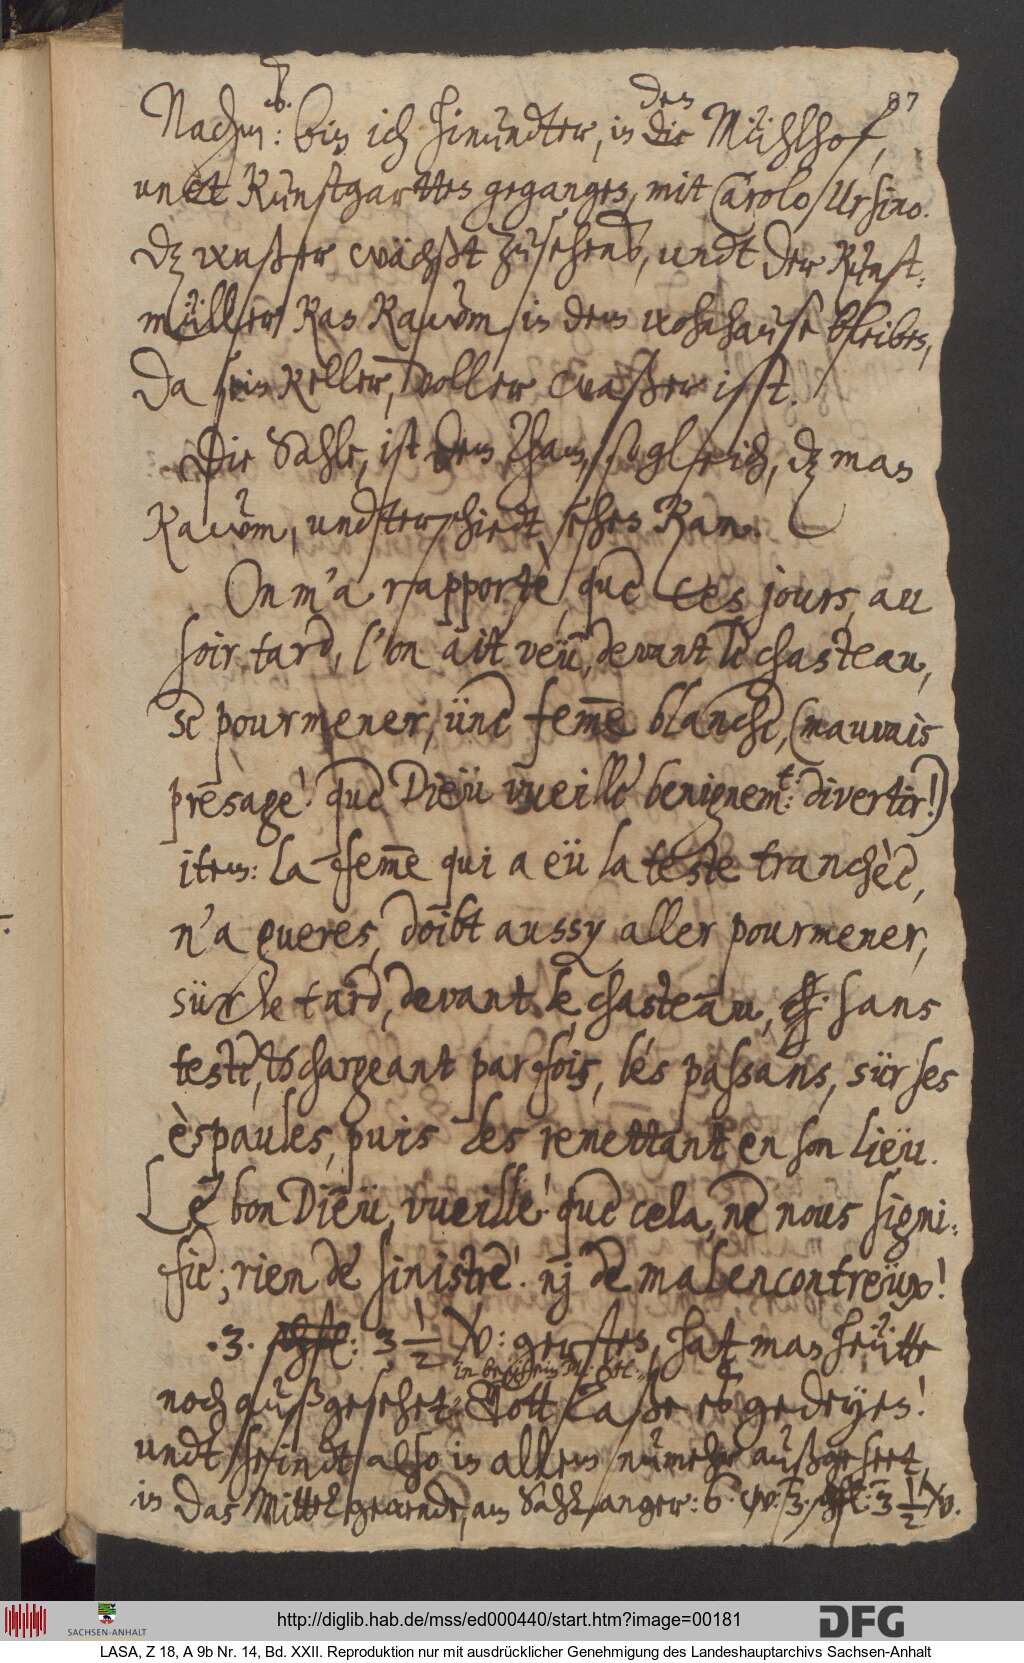 87
Nachm: bin ich hinundter, in den die Mühlhof,
undt Kunstgartten gegangen, mit Carolo Ursino.
Dz waßer wächßt zusehends, undt der Kunst=
müller kan kaum in dem wohnhause bleiben,
Da sein Keller, voller waßer ist.
Die Sahle, ist dem Tham, so gleich, dz man
kaum, undterschiedt sehen kan.
On m'a rapportè, que ces jours, au
soir tard, l'on ait veü, devant le chasteau,
se pourmener, üne feme blanche, (mauvais
presage! que Dieü vueille benignemt: divertir!)
item: la feme qui a eü la teste tranchèe,
n'a gueres, doibt aussy aller pourmener,
sür le tard, devant le chasteau, sans
teste, & chargeant par fois, les passans, sür ses
èspaules, puis les remettant en son lieü.
Le bon Dieü, vueille! que cela, ne nous signi=
fie; rien de sinistre! nj de malencontreüx!
3. schfl: 3 1/2 V: gersten, hat man heütte
noch außgesehet, Gott laße es gedeyen!
undt seindt also in allem numehr außgeseet,
in das Mittelgewende, am Sahlanger: 6 w: 3. schfl: 3 1/2 V.
http://diglib.hab.de/mss/ed000440/start.htm?image=00181
SACHSEN-ANHALT
DFG
LASA, Z 18, A 9b Nr. 14, Bd. XXII. Reproduktion nur mit ausdrücklicher Genehmigung des Landeshauptarchivs Sachsen-Anhalt